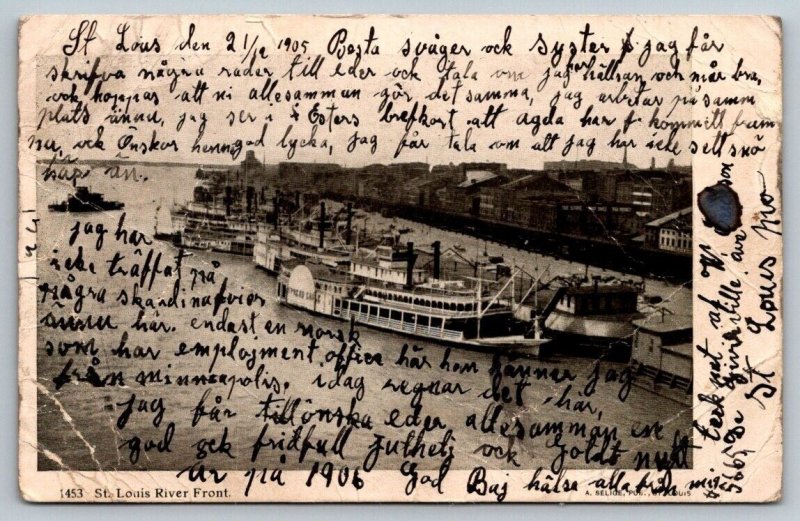 St Louis den 21/12 1905 Bästa svåger och syster jag får
skrifva några rader till eder och tala om jag är hällsan och mår bra,
och hoppas att ni allesamman gör det samma, jag arbetar på samm
plats ännu, jag ser i Esters brefkort att agda har kommett fram
och Önskar henne god lycka, jag får tala om att jag har icke sett snö
här än.
jag har
icke träffat på
några skandinavier
ännu här. endast en norsk
som har employment office här hon känner jag
från minneapolis. idag regnar det här,
jag får tillönska eder allesamman en
god och fridfull julhelj och Godt nytt
år på 1906 God Baj hälsa alla från mig
1453 St. Louis River Front.
A. SELIGE, PUB., ST. LOUIS
teck nat af
5665
St Louis Mo